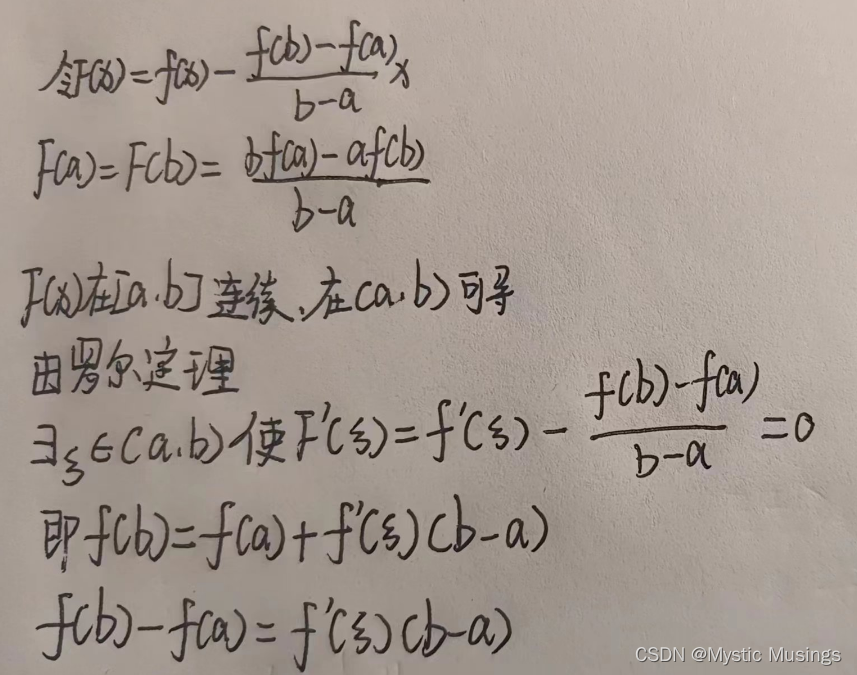 令F(x)=f(x)-\frac{f(b)-f(a)}{b-a}x
F(a)=F(b)=\frac{bf(a)-af(b)}{b-a}
F(x)在[a.b]连续、在(a.b)可导
由罗尔定理
∃ξ∈(a.b)使F'(ξ)=f'(ξ)-\frac{f(b)-f(a)}{b-a}=0
即f(b)=f(a)+f'(ξ)(b-a)
f(b)-f(a)=f'(ξ)(b-a)
CSDN @Mystic Musings